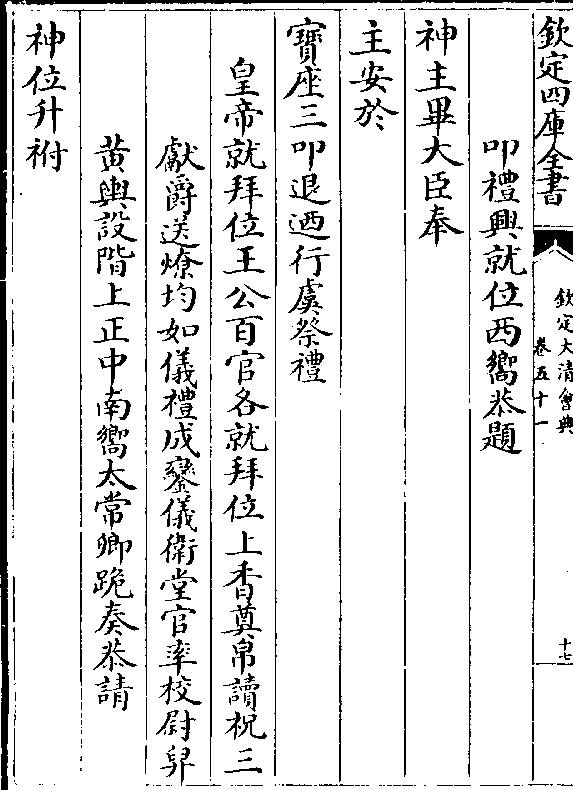 欽定四庫全書
欽定大清會典
卷五十一
十七
叩禮興就位西嚮恭題
神主畢大臣奉
主安於
寶座三叩退廼行虞祭禮
皇帝就拜位王公百官各就拜位上香奠帛讀祝三
獻爵送燎均如儀禮成鑾儀衛堂官率校尉舁
黃輿設階上正中南嚮太常卿跪奏恭請
神位升祔